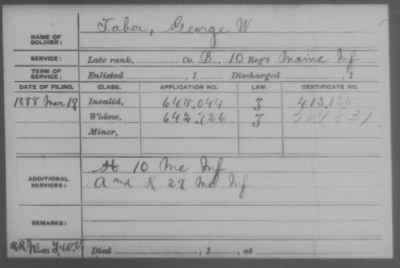 NAME OF SOLDIER: Tabor, George W
SERVICE: Late rank, Co. B, 10 Reg't Maine Inf
TERM OF SERVICE: Enlisted , 1 Discharged , 1
DATE OF FILING. CLASS. APPLICATION NO. LAW. CERTIFICATE NO.
1888 Mar 19 Invalid, 645,044 J 413,1
Widow, 642,126 J
Minor,
ADDITIONAL SERVICES: H 10 Me Inf
A and K 29 Me Inf
REMARKS:
Died , 1 , at